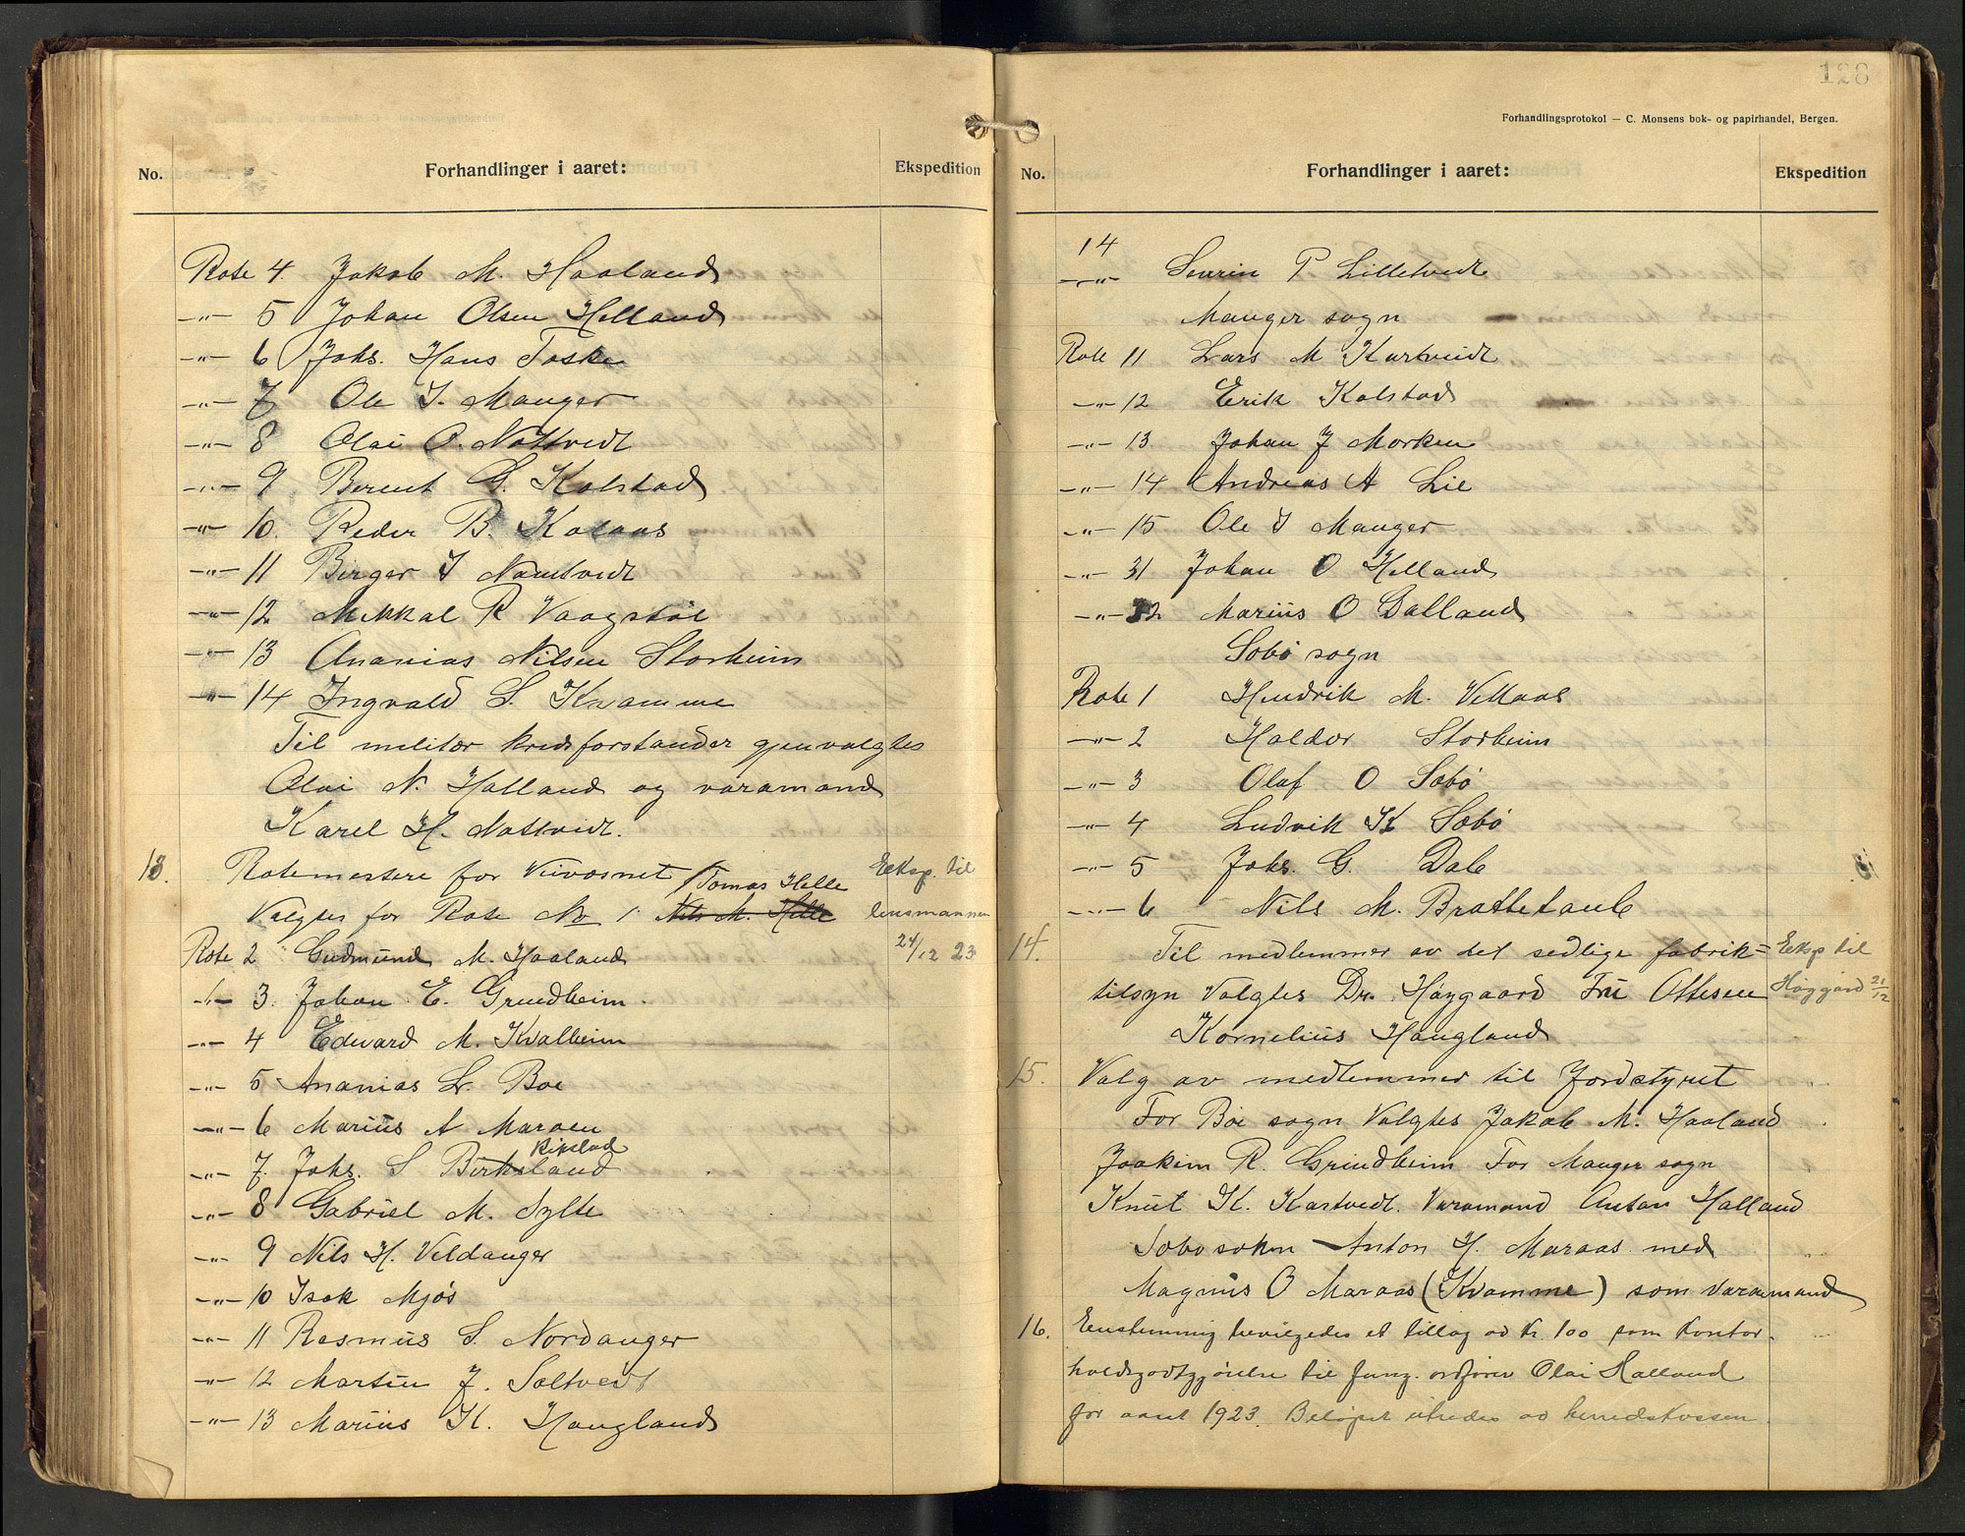 No.
Forhandlinger i aaret:
Ekspedition
Rote 4. Jakob M. Haaland
-"- 5 Johan Olsen Helland
-"- 6 Johs. Hans Toska
-"- 7 Ole J. Manger
-"- 8 Olai O. Nottvedt
-"- 9 Berent G. Kolstad
-"- 10. Peder B. Kolaas
-"- 11 Birger J Namtvedt
-"- 12 Mikkal R Vaagstøl
-"- 13 Ananias Nilsen Storheim
-"- 14 Ingvald S. Kvamme
Til militær kredsforstander gjenvalgtes
Olai N. Halland og varamand
Karel H. Nottveit.
13. Rotemestere for Veivæsnet Tomas Helle Eeksp. til
Valgtes for Rote No 1 Nils M. Helle lensmannen
Rote 2 Gudmund M. Haaland 24/12 23
-"- 3. Johan E. Grindheim.
-"- 4 Edvard M. Kvalheim
-"- 5 Ananias L. Boe
-"- 6 Marius A Maraas
Rikstad
-"- 7. Johs. S Birkeland
-"- 8 Gabriel M. Sylte
-"- 9 Nils H. Veldanger
-"- 10 Isak Mjøs
-"- 11 Rasmus S. Nordanger
-"- 12 Martin J. Soltvedt
-"- 13 Marius K. Haugland
128
Forhandlingsprotokol — C. Monsens bok- og papirhandel, Bergen.
No.
Forhandlinger i aaret:
Ekspedition
14
-"- Severin P Lilletvedt
Manger sogn
Rote 11 Lars M Kartveidt
-"- 12 Erik Kolstad
-"- 13 Johan J Morken
-"- 14 Andreas A Lie
-"- 15 Ole J Manger
-"- 31 Johan O Helland
-"- 32 Marius O Dalland
Sobø sogn
Rote 1 Hendrik M. Vettaas
-"- 2 Haldor Storheim
-"- 3 Olaf O Sobø
-"- 4 Ludvik K Sæbø
-"- 5 Johs. G. Dale
-"- 6 Nils M. Brattetaule
14. Til medlemmer av det sedlige fabrik= Eeksp til
tilsyn Valgtes Dr. Høygaard Fru Ottesen Høygård 21/12
Kornelius Haugland
15. Valg av medlemmer til Jordstyret
For Bøe sogn Valgtes Jakob M. Haaland
Joakim R. Grindheim For Manger sogn
Knut K. Kartvedt. Varamand Anton Halland
Sobo sokn Anton H. Maraas med
Magnus O Maraas (Kvamme) som varamand
16. Eenstemmig bevilgedes et tillæg av Kr. 100 som kontor-
holdsgodtgjørelse til fung. ordfører Olai Halland
for aaret 1923. Beløpet utredes av herredskassen.